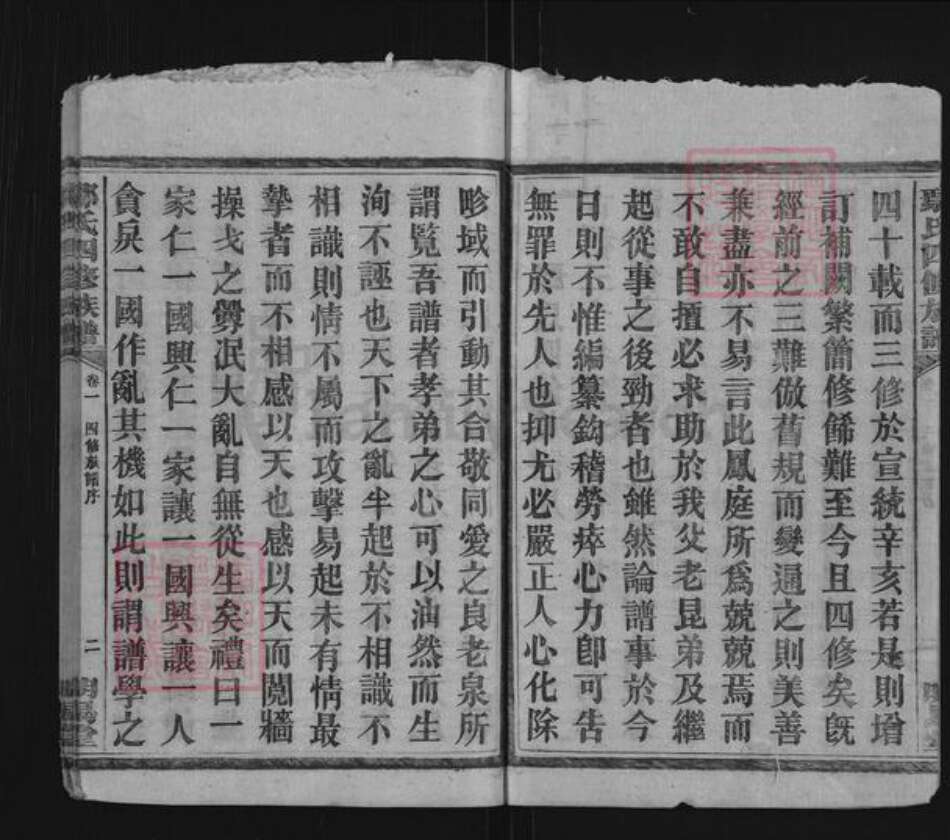 四十載而三修於宣統辛亥若是則增
訂補闕繁簡修餙難至今且四修矣旣
經前之三難倣舊規而變通之則美善
兼盡亦不易言此鳳庭所爲兢兢焉而
不敢自擅必求助於我父老昆弟及繼
起從事之後勁者也雖然論譜事於今
日則不惟編纂鈎稽勞瘁心力卽可告
無罪於先人也抑尤必嚴正人心化除
畛域而引動其合敬同愛之良老泉所
謂覧吾譜者孝弟之心可以油然而生
洵不誣也天下之亂半起於不相識不
相識則情不屬而攻擊易起未有情最
摯者而不相感以天也感以天而鬩牆
操戈之釁泯大亂自無從生矣禮曰一
家仁一國興仁一家讓一國興讓一人
貪戾一國作亂其機如此則謂譜學之
氏四修族譜
卷一
四修族譜序
二